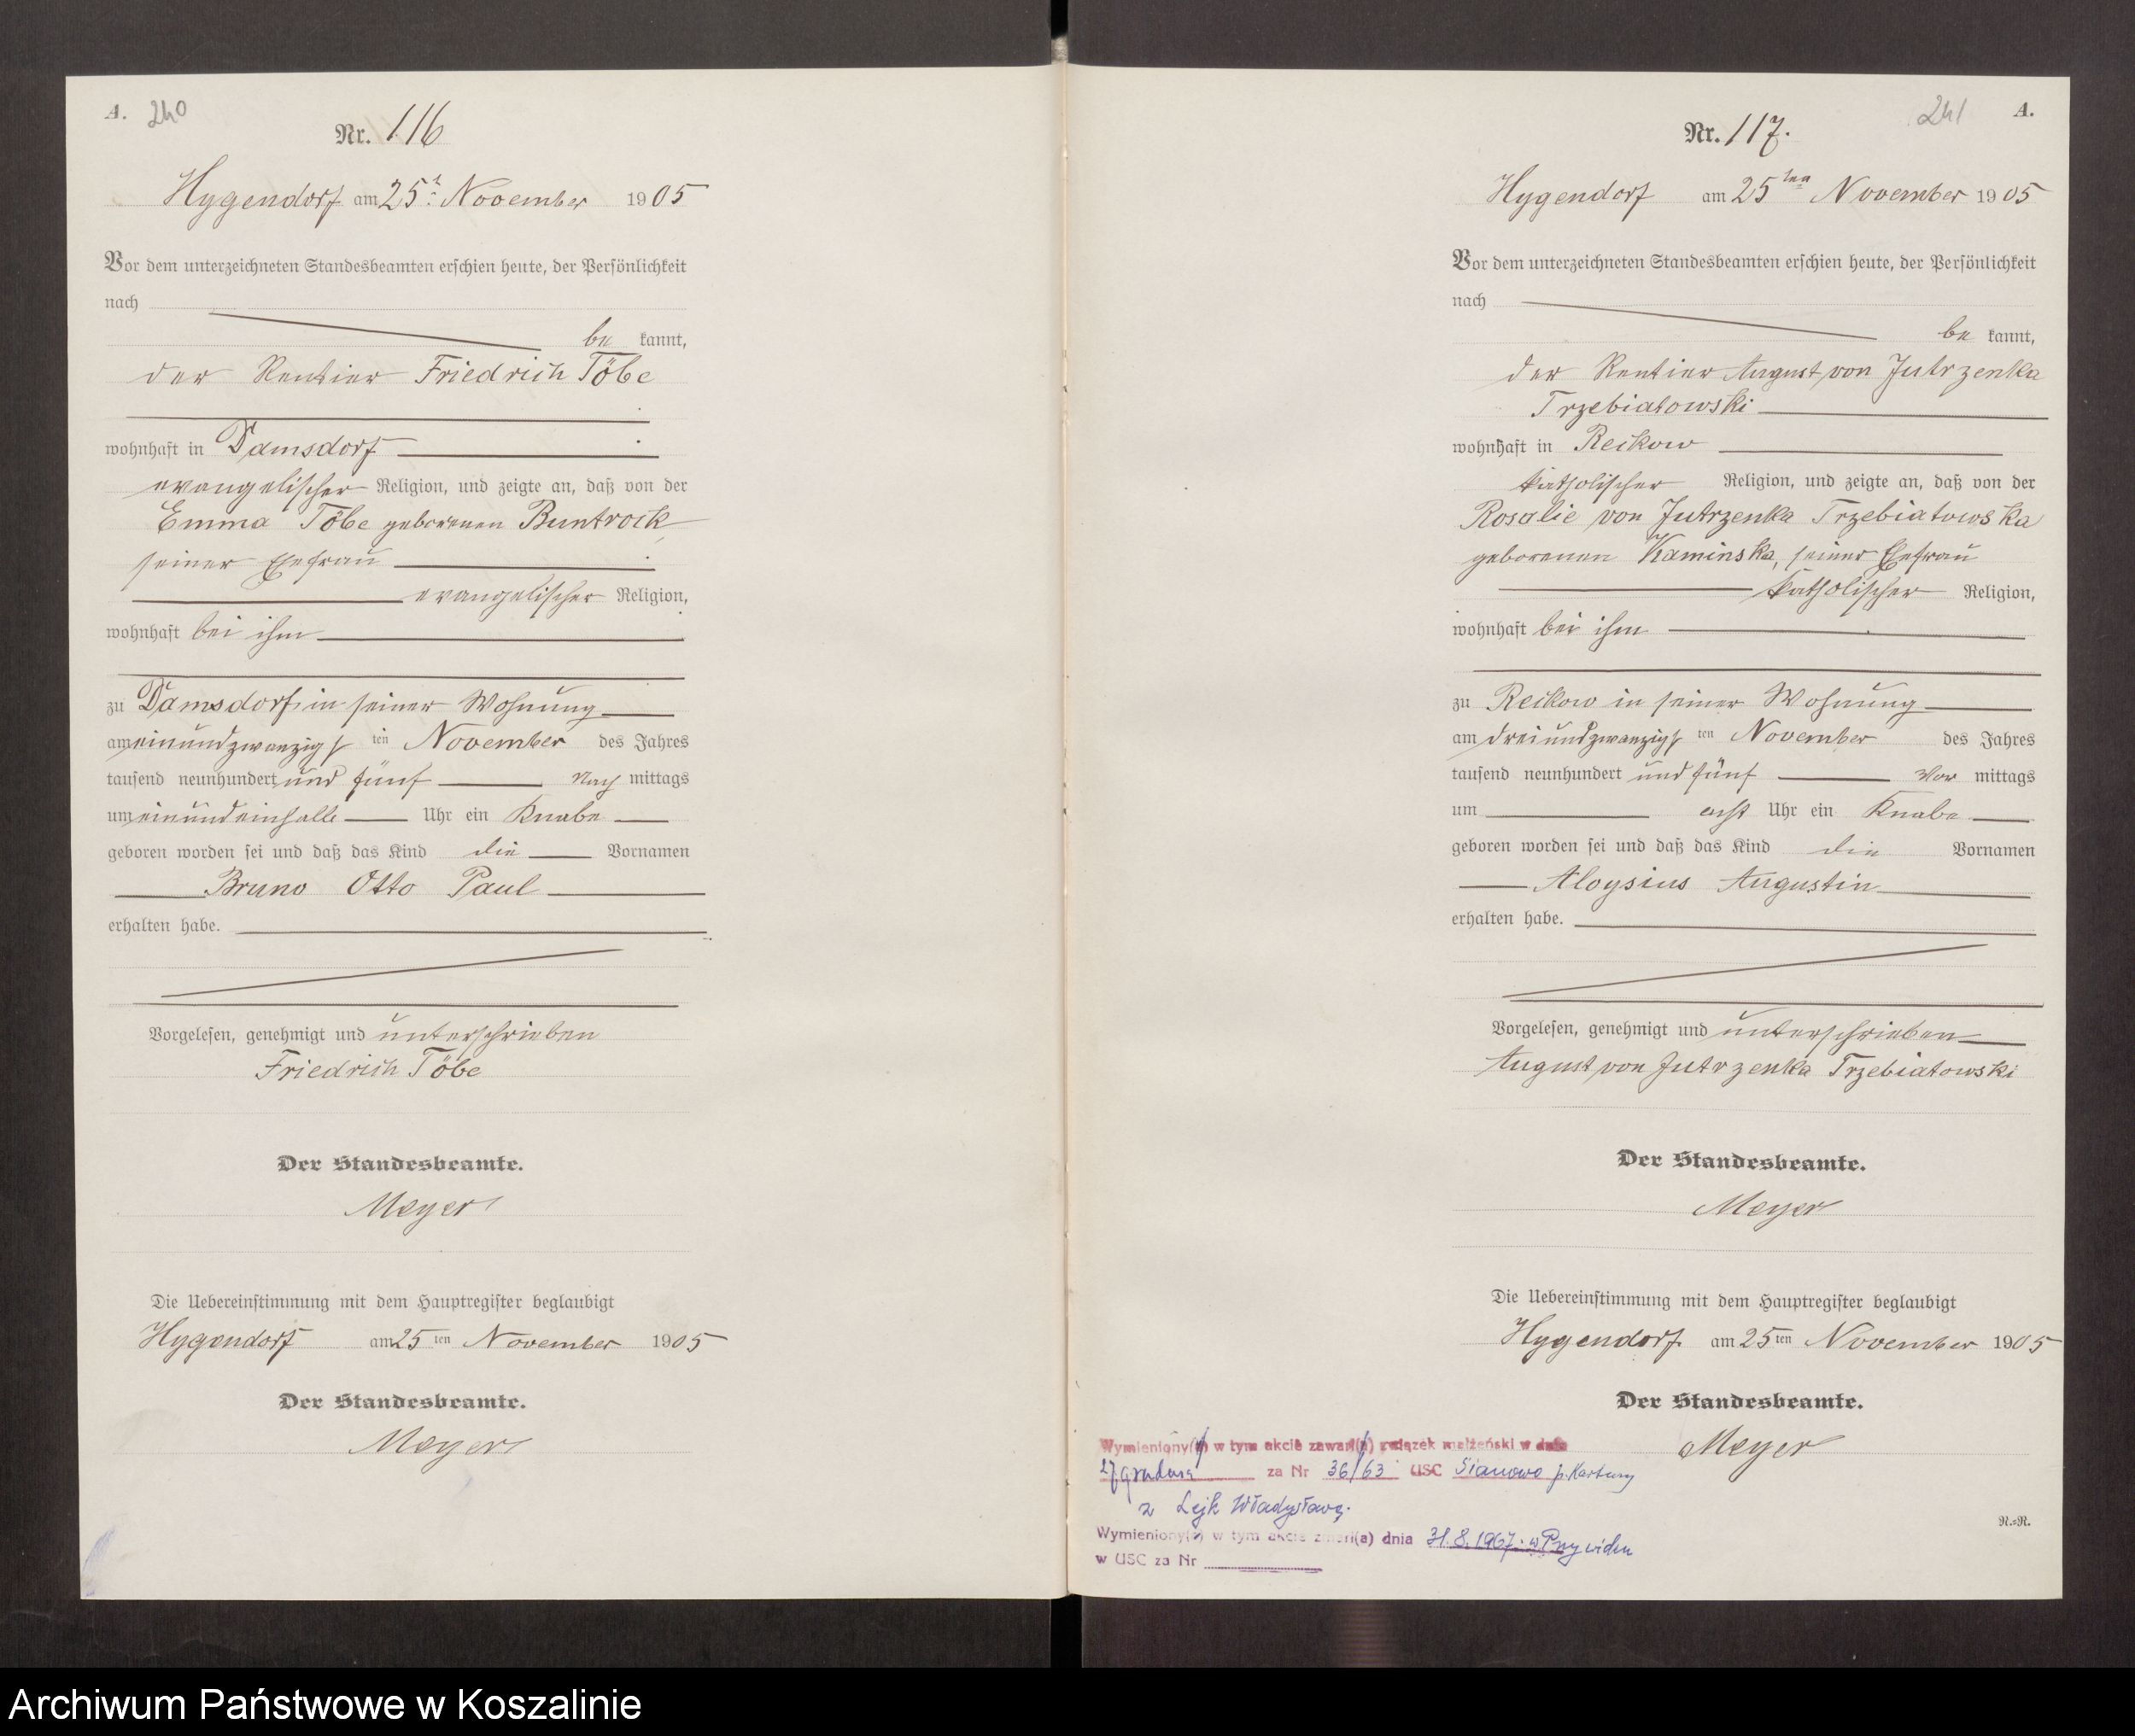 A. 240
Nr. 116
Hygendorf am 25t November 1905
Vor dem unterzeichneten Standesbeamten erschien heute, der Persönlichkeit
nach
be kannt,
der Rentier Friedrich Töbe
wohnhaft in Damsdorf
evangelischer Religion, und zeigte an, daß von der
Emma Töbe geborenen Buntrock
seiner Ehefrau
evangelischer Religion,
wohnhaft bei ihm
zu Damsdorf in seiner Wohnung
am einundzwanzigs ten November des Jahres
tausend neunhundert und fünf Nach mittags
um einundeinhalb Uhr ein Knabe
geboren worden sei und daß das Kind die Vornamen
Bruno Otto Paul
erhalten habe.
Vorgelesen, genehmigt und unterschrieben
Friedrich Töbe
Der Standesbeamte.
Meyer
Die Uebereinstimmung mit dem Hauptregister beglaubigt
Hygendorf am 25 ten November 1905
Der Standesbeamte.
Meyer
241 A.
Nr. 117.
Hygendorf am 25ten November 1905
Vor dem unterzeichneten Standesbeamten erschien heute, der Persönlichkeit
nach
be kannt,
der Rentier August von Jutrzenka
Trzebiatowski
wohnhaft in Reckow
katholischer Religion, und zeigte an, daß von der
Rosalie von Jutrzenka Trzebiatowska
geborenen Kaminska, seiner Ehefrau
katholischer Religion,
wohnhaft bei ihm
zu Reckow in seiner Wohnung
am dreiundzwanzigs ten November des Jahres
tausend neunhundert und fünf Vor mittags
um acht Uhr ein Knabe
geboren worden sei und daß das Kind die Vornamen
Aloysius Augustin
erhalten habe.
Vorgelesen, genehmigt und unterschrieben
August von Jutrzenka Trzebiatowski
Der Standesbeamte.
Meyer
Die Uebereinstimmung mit dem Hauptregister beglaubigt
Hygendorf am 25 ten November 1905
Der Standesbeamte.
Meyer
Wymieniony(a) w tym akcie zawarł(a) związek małżeński w dniu
27 grudnia za Nr 36/63 USC Sianowo p. Kartuzy
z Lejk Władysławą.
Wymieniony(a) w tym akcie zmarł(a) dnia 31.8.1967. w
w USC za Nr
R.=R.
Archiwum Państwowe w Koszalinie